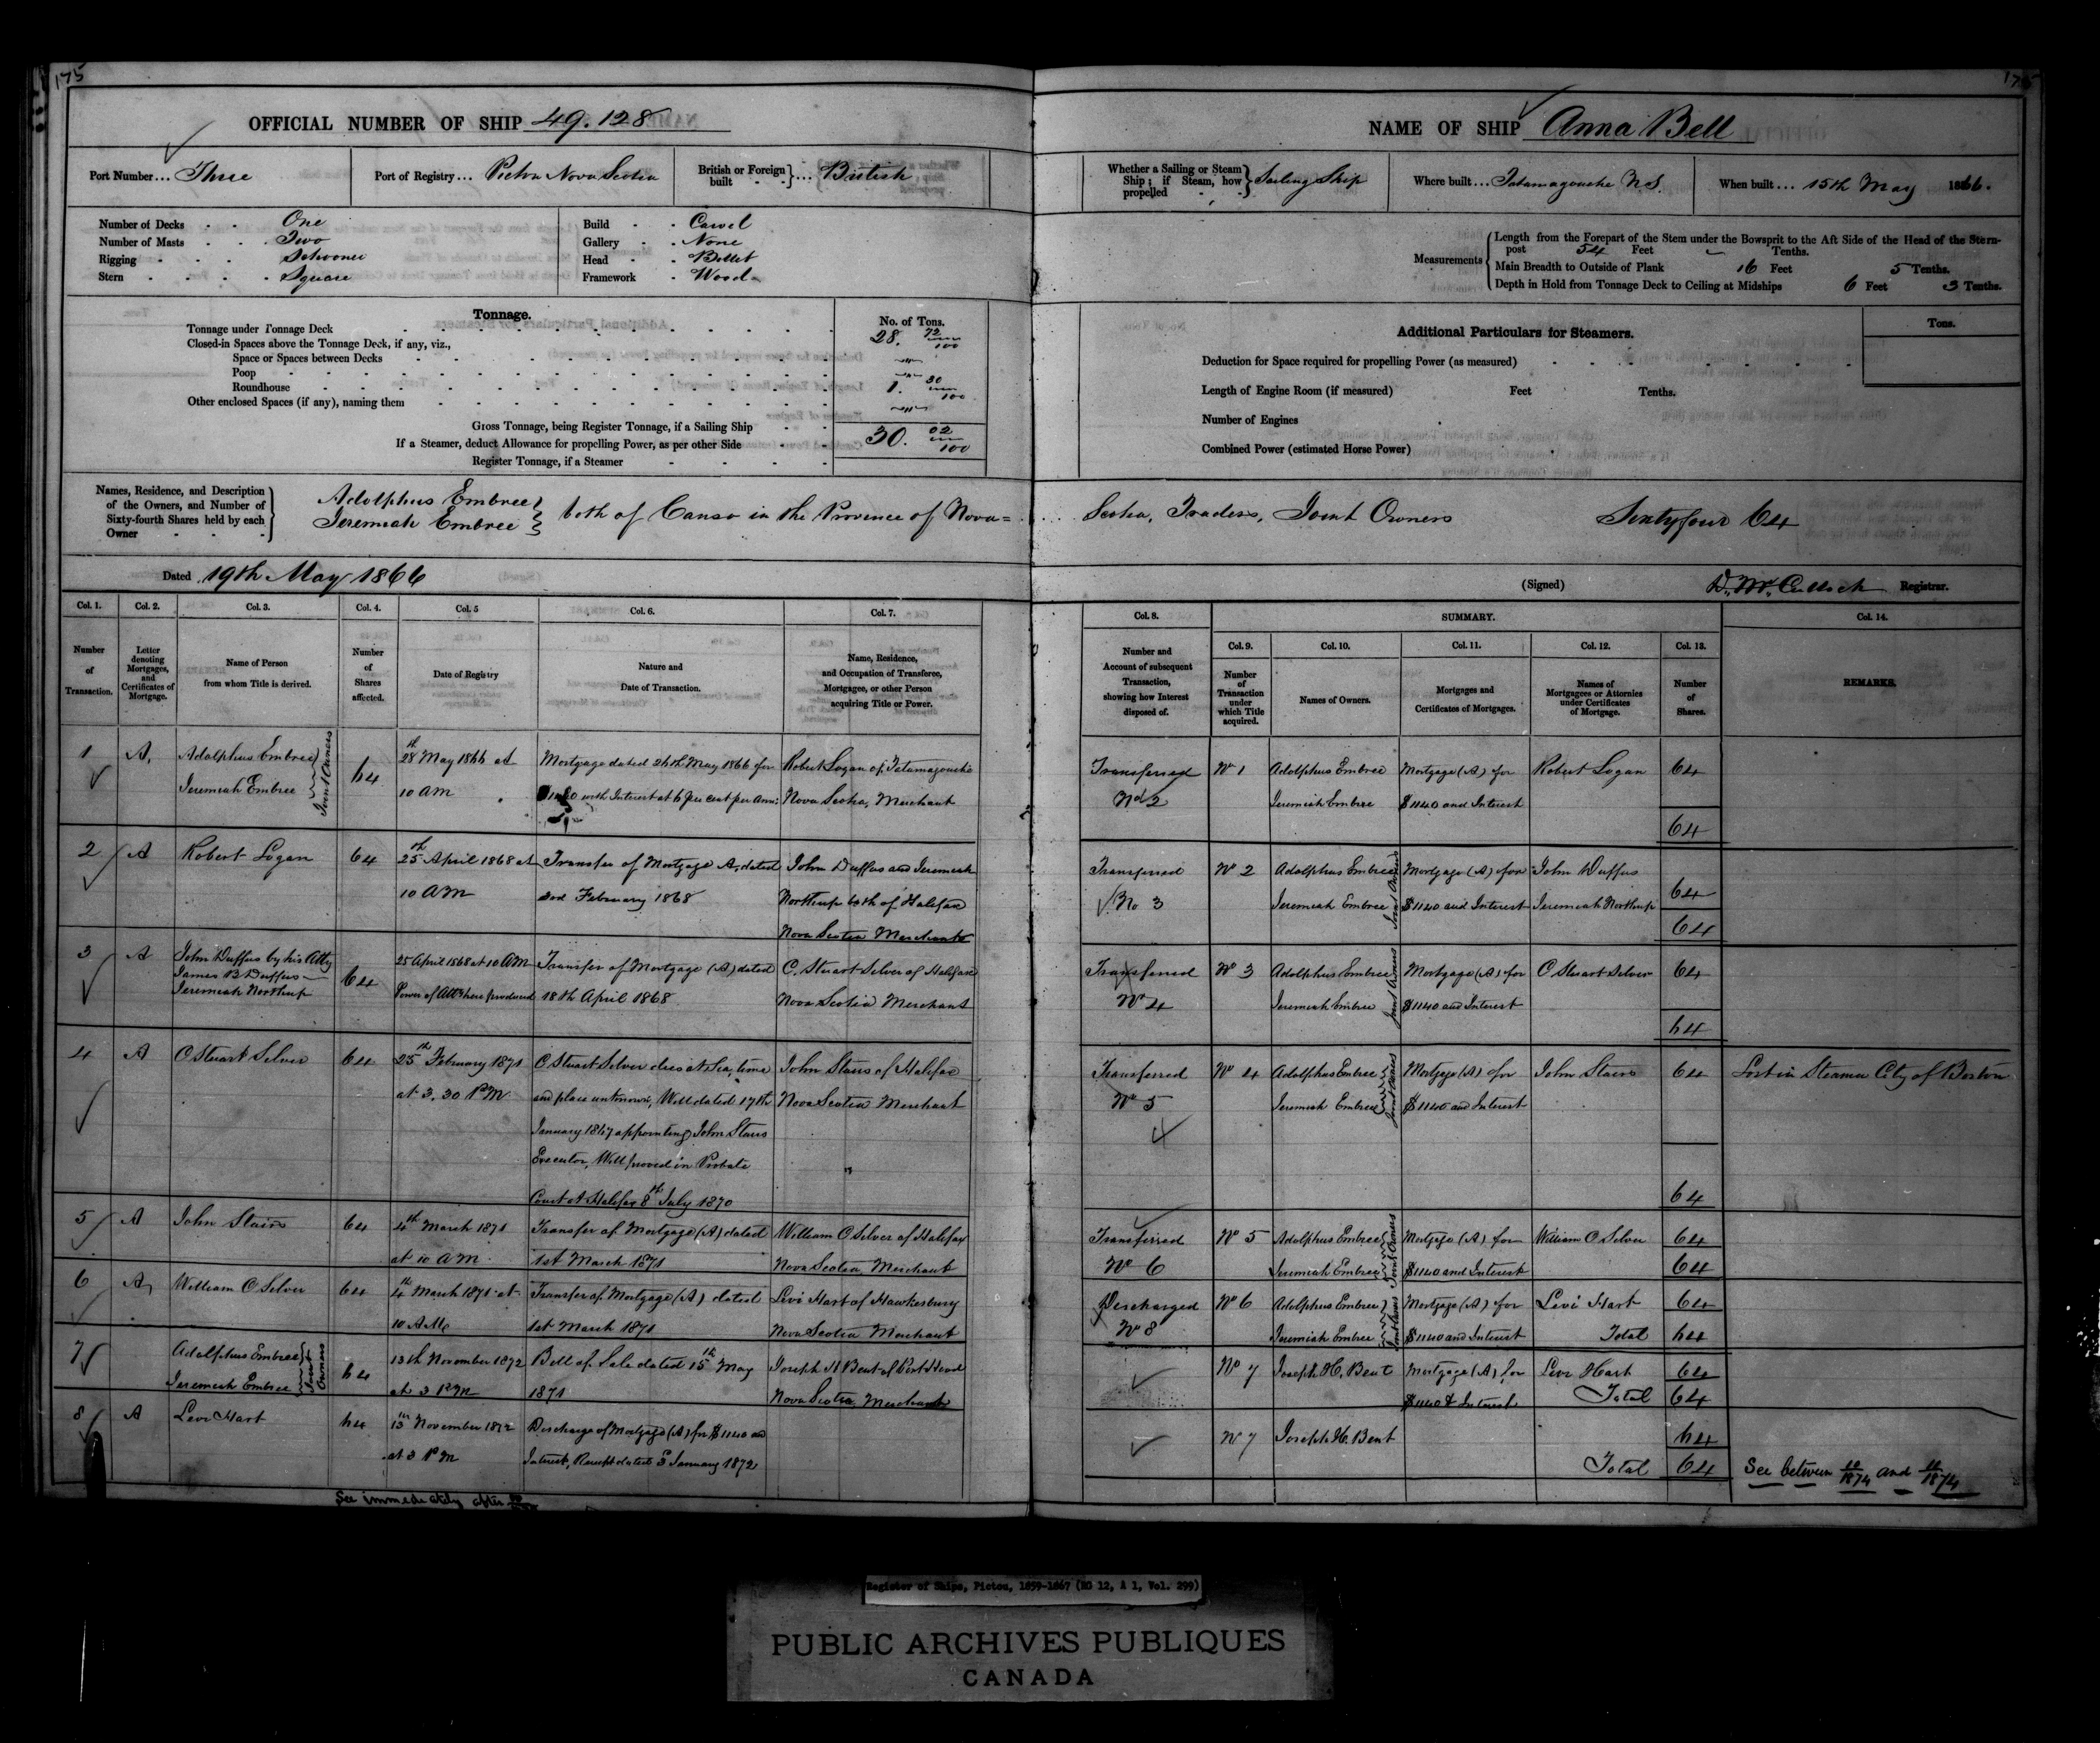 175
175
OFFICIAL NUMBER OF SHIP 49.128
NAME OF SHIP Anna Bell
Port Number... Three
Port of Registry... Pictou Nova Scotia
British or Foreign built } ... British
Whether a Sailing or Steam Ship; if Steam, how propelled } Sailing Ship
Where built... Tatamagouche N.S.
When built... 15th May 1866.
Number of Decks One
Number of Masts Two
Rigging Schooner
Stern Square
Build Carvel
Gallery None
Head Billet
Framework Wood
Measurements
Length from the Forepart of the Stem under the Bowsprit to the Aft Side of the Head of the Stern-
post 54 Feet Tenths.
Main Breadth to Outside of Plank 16 Feet 5 Tenths.
Depth in Hold from Tonnage Deck to Ceiling at Midships 6 Feet 3 Tenths.
Tonnage.
No. of Tons.
Tonnage under Tonnage Deck 28. 72/100
Closed-in Spaces above the Tonnage Deck, if any, viz.,
Space or Spaces between Decks
Poop
Roundhouse 1. 30/100
Other enclosed Spaces (if any), naming them
Gross Tonnage, being Register Tonnage, if a Sailing Ship 30. 02/100
If a Steamer, deduct Allowance for propelling Power, as per other Side
Register Tonnage, if a Steamer
Additional Particulars for Steamers.
Tons.
Deduction for Space required for propelling Power (as measured)
Length of Engine Room (if measured) Feet Tenths.
Number of Engines
Combined Power (estimated Horse Power)
Names, Residence, and Description
of the Owners, and Number of
Sixty-fourth Shares held by each
Owner
Adolphus Embree
Jeremiah Embree } both of Canso in the Province of Nova=
Scotia, Traders, Joint Owners Sixtyfour 64
Dated 19th May 1866
(Signed) D. McCulloch Registrar.
Col. 1.
Number
of
Transaction.
Col. 2.
Letter
denoting
Mortgages,
and
Certificates of
Mortgage.
Col. 3.
Name of Person
from whom Title is derived.
Col. 4.
Number
of
Shares
affected.
Col. 5
Date of Registry
Col. 6.
Nature and
Date of Transaction.
Col. 7.
Name, Residence,
and Occupation of Transferee,
Mortgagee, or other Person
acquiring Title or Power.
Col. 8.
Number and
Account of subsequent
Transaction,
showing how Interest
disposed of.
SUMMARY.
Col. 9.
Number
of
Transaction
under
which Title
acquired.
Col. 10.
Names of Owners.
Col. 11.
Mortgages and
Certificates of Mortgages.
Col. 12.
Names of
Mortgagees or Attornies
under Certificates
of Mortgage.
Col. 13.
Number
of
Shares.
Col. 14.
REMARKS.
1
A.
Adolphus Embree
Jeremiah Embree
Joint Owners
64
28th May 1866 at
10 AM
Mortgage dated 24th May 1866 for
with Interest at 6 per cent per Ann:
Robert Logan of Tatamagouche
Nova Scotia, Merchant
Transferred
No 2
No 1
Adolphus Embree
Jeremiah Embree
Mortgage (A) for
$1140 and Interest
Robert Logan
64
64
2
A
Robert Logan
64
25th April 1868 at
10 AM
Transfer of Mortgage A, dated
3rd February 1868
John Duffus and Jeremiah
Northup both of Halifax
Nova Scotia Merchants
Transferred
No 3
No 2
Adolphus Embree
Jeremiah Embree
Joint Owners
Mortgage (A) for
$1140 and Interest
John Duffus
Jeremiah Northup
64
64
3
A
John Duffus by his Atty
James B Duffus
Jeremiah Northup
64
25 April 1868 at 10 AM
Power of Atty here produced
Transfer of Mortgage (A) dated
18th April 1868
C. Stuart Silver of Halifax
Nova Scotia Merchant
Transferred
No 4
No 3
Adolphus Embree
Jeremiah Embree
Joint Owners
Mortgage (A) for
$1140 and Interest
C Stuart Silver
64
64
4
A
C Stuart Silver
64
25th February 1871
at 3.30 PM
C Stuart Silver dies at Sea, time
and place unknown, Will dated 17th
January 1867 appointing John Stairs
Executor, Will proved in Probate
Court at Halifax 8th July 1870
John Stairs of Halifax
Nova Scotia Merchant
Transferred
No 5
No 4
Adolphus Embree
Jeremiah Embree
Joint Owners
Mortgage (A) for
$1140 and Interest
John Stairs
64
64
Lost in Steamer City of Boston
5
A
John Stairs
64
4th March 1871
at 10 AM
Transfer of Mortgage (A) dated
1st March 1871
William C Silver of Halifax
Nova Scotia Merchant
Transferred
No 6
No 5
Adolphus Embree
Jeremiah Embree
Joint Owners
Mortgage (A) for
$1140 and Interest
William C Silver
64
64
6
A
William C Silver
64
4th March 1871 at
10 AM
Transfer of Mortgage (A) dated
1st March 1871
Levi Hart of Hawkesbury
Nova Scotia Merchant
Discharged
No 8
No 6
Adolphus Embree
Jeremiah Embree
Joint Owners
Mortgage (A) for
$1140 and Interest
Levi Hart
64
Total 64
7
Adolphus Embree
Jeremiah Embree
Joint Owners
64
13th November 1872
at 3 PM
Bill of Sale dated 15th May
1871
Joseph H Bent of Port Hood
Nova Scotia Merchant
No 7
Joseph H. Bent
Mortgage (A) for
$1140 & Interest
Levi Hart
64
Total 64
8
A
Levi Hart
64
13th November 1872
at 3 PM
Discharge of Mortgage (A) for $1140 and
Interest, Receipt dated 3 January 1872
No 7
Joseph H. Bent
64
Total 64
See between 10/1874 and 11/1874
See immediately after
Register of Ships, Pictou, 1859-1867 (RG 12, A 1, Vol. 299)
PUBLIC ARCHIVES PUBLIQUES
CANADA